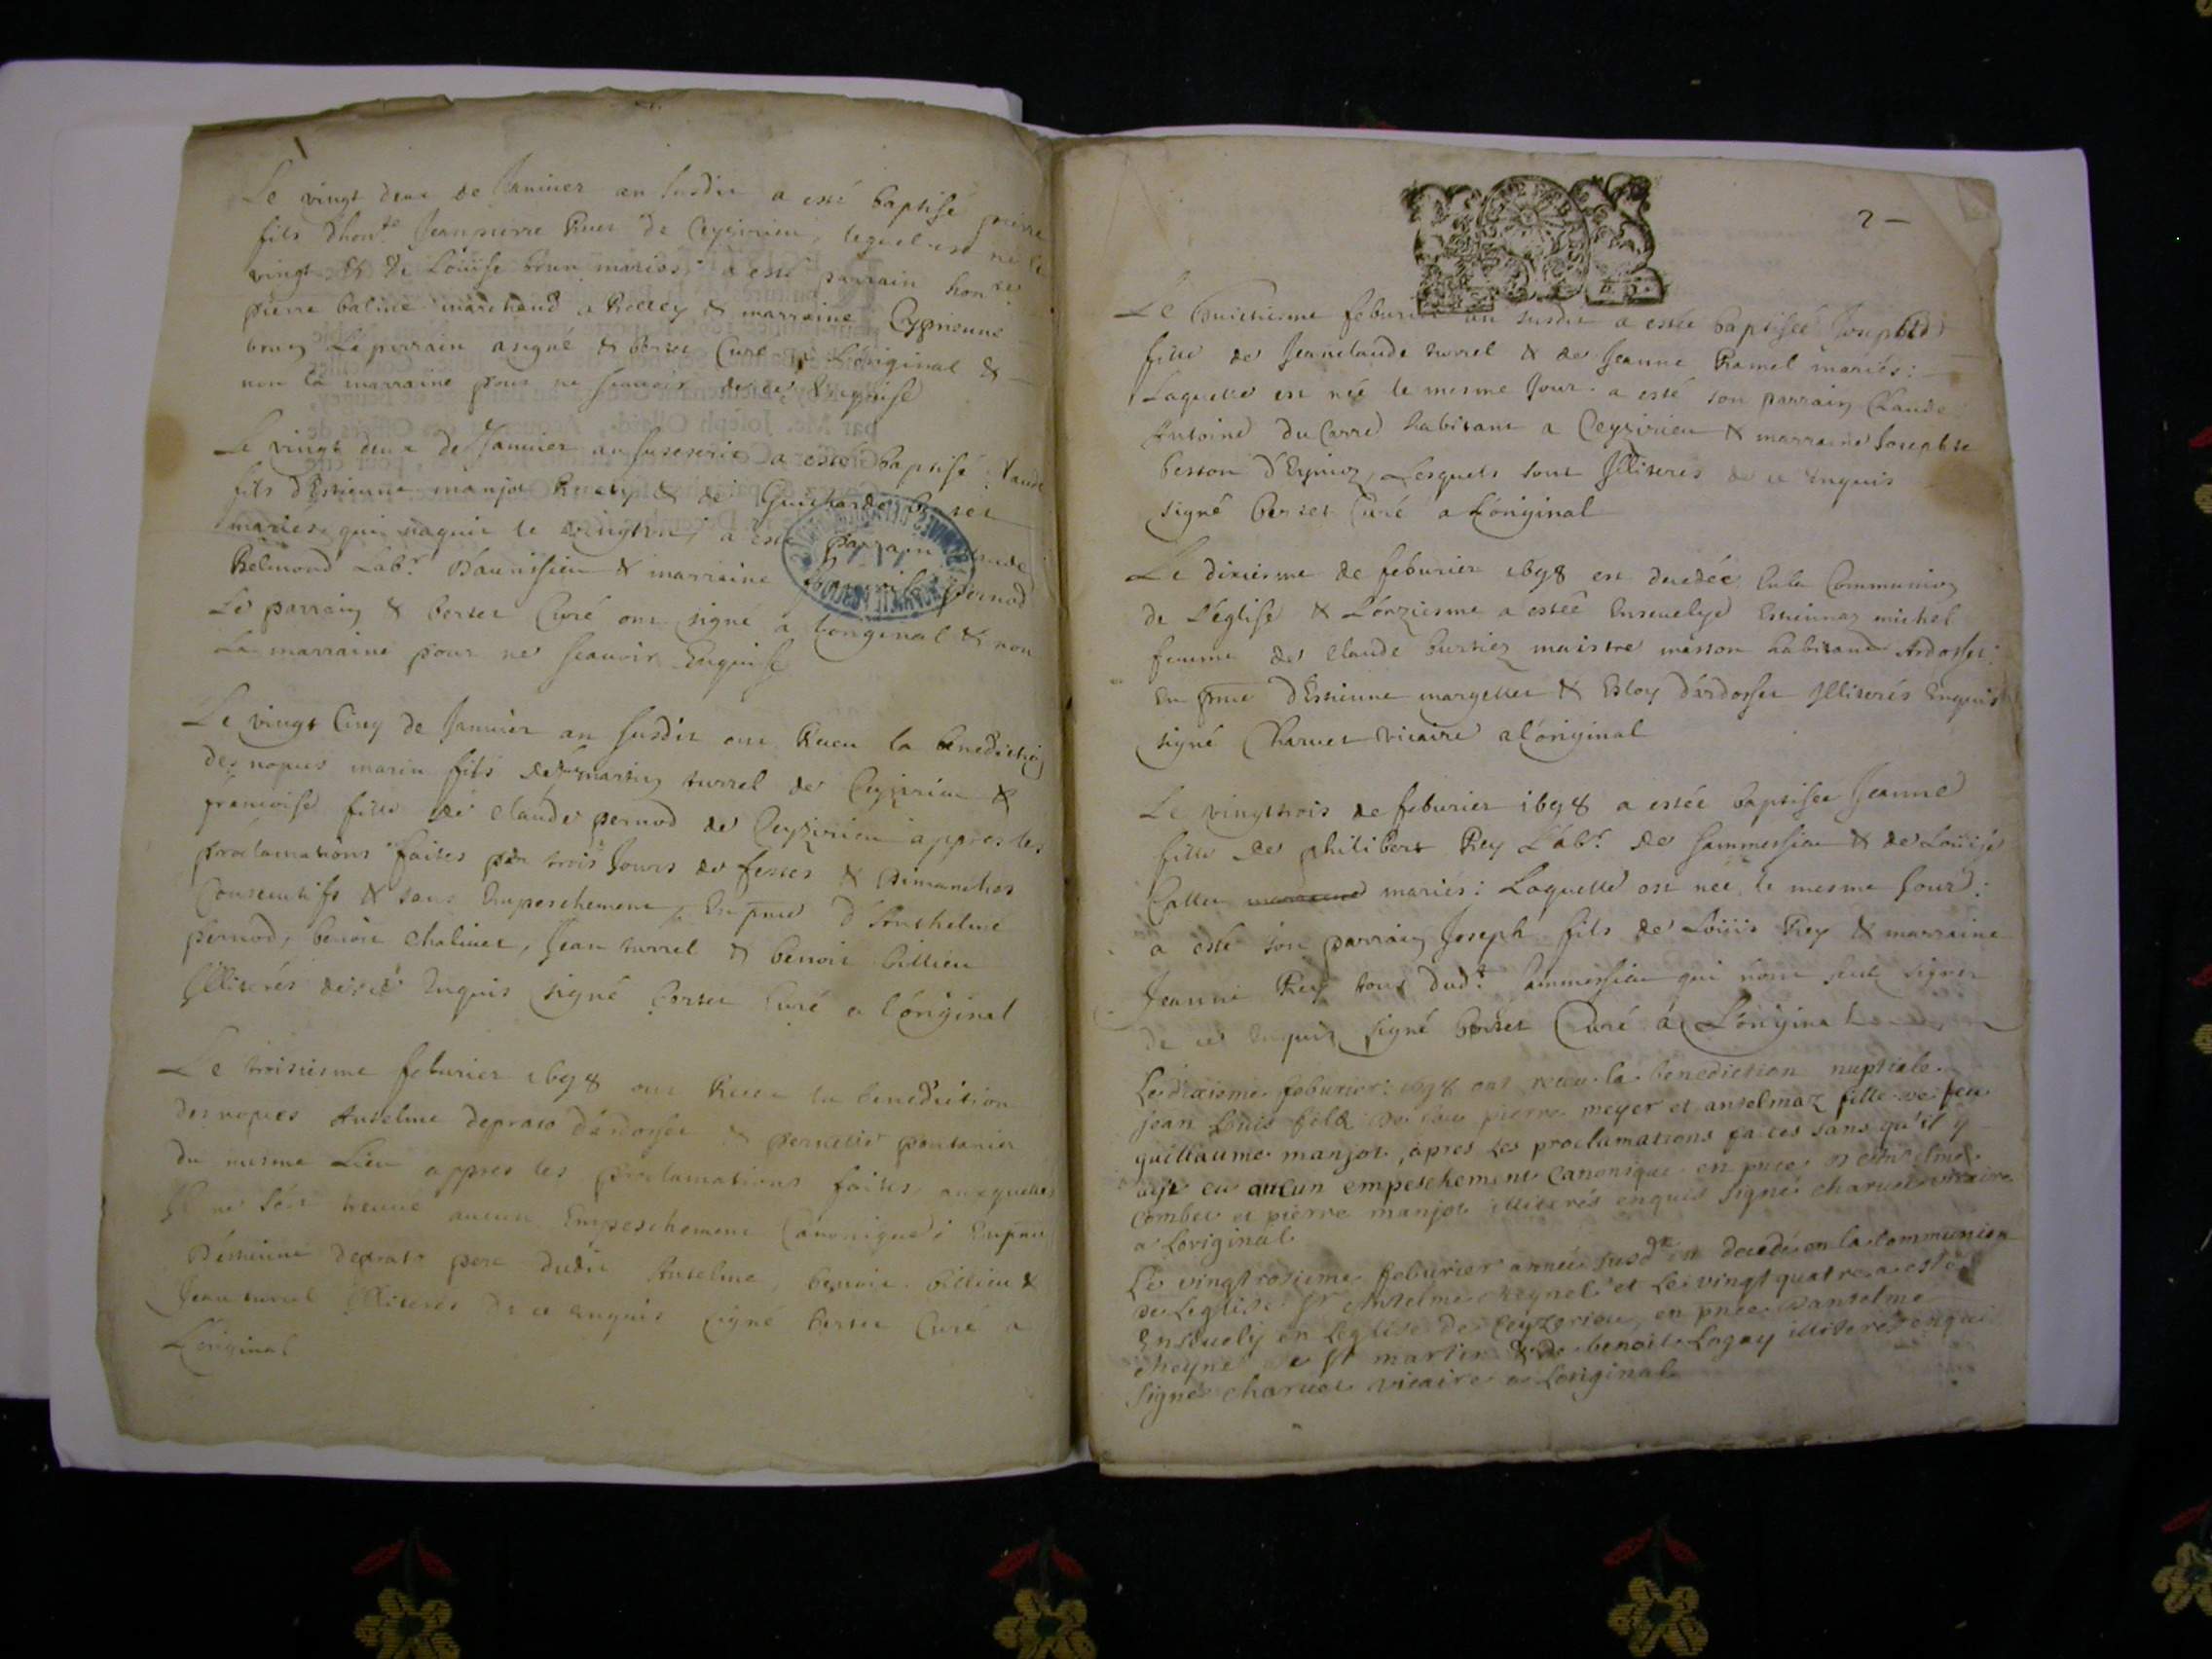 Le vingt deux de Janvier an susdit a esté baptisé pierre
fils d'hon.te Jeanpierre Ruet de Ceyzirieu, lequel est né le
vingt & de Loüise brun mariés: a esté parrain hon.re
pierre balme marchand a & marraine
Le parrain a signé & berset Curé a L'original &
non la marraine pour ne sçavoir de ce Enquise
Le vingt deux de Janvier an susescrit a esté baptisé Claude
fils d'Estienne manjot & de Guicharde berset
mariés qui naquit le vingt un, a esté parrain Claude
Belmond Lab.r & marraine pernod
Le parrain & berset Curé ont signé a Loriginal & non
La marraine pour ne sçavoir Enquise
Le vingt Cinq de Janvier an susdit ont Receu la benediction
des nopces marin fils de martin turrel de Ceyzirieu &
francoise fille de Claude pernod de Ceyzirieu appres les
proclamations faites par trois Jours de festes & Dimanches
Consecutifs & sans Empeschement, En pnce d'Anthelme
pernod, benoit Chaliuet, Jean turrel & benoit billieu
Illiterés de ce Enquis signé berset Curé a l'original
Le troisiesme feburier 1698 ont Receu la benediction
des nopces Anselme depraso d'Ardosset & pernette pontanier
du mesme Lieu appres les proclamations faites, auxquelles
Il ne s'est treuué aucun Empeschement Canonique: En pnce
d'Estienne depraso pere dudit Anselme, benoit billieu &
Jean turrel Illiterés de ce enquis signé berset Curé a
L'original
2
Le huictiesme feburier an susdit a estée baptisée Josephte
fille de Jeanclaude turrel & de Jeanne Ramel mariés:
Laquelle est née le mesme Jour. a esté son parrain Claude
Antoine du Carre habitant a Ceyzirieu & marraine Josephte
besson d'Eynioz, Lesquels sont Illiteres de ce Enquis
signé berset Curé a L'original
Le dixiesme de feburier 1698 est decedée En la Communion
de L'eglise & L'onziesme a estée Enseuelye Estiennaz michel
femme de Claude bursiez maistre masson habitant Ardosset:
En pnce d'Estienne margettet & Eloy d'ardosset Illiterés Enquis
signé Charuet vicaire a l'original
Le vingt trois de feburier 1698 a estée baptisée Jeanne
fille de philibert Rey Lab.r de sammessieu & de Loüise
Callet mariés: Laquelle est née le mesme Jour:
a esté son parrain Joseph fils de Loüis Rey & marraine
Jeanne Rey tous dud.t sammessieu qui n'ont sceu signer
de ce enquis signé berset Curé a L'original
Le dixisme feburier: 1698 ont receu la benediction nuptiale
jean Louis fils de feu pierre meyer et anselmaz fille de feu
guillaume manjot, apres les proclamations faites sans qu'il y
aye eu aucun empeschement canonique en pnce d'anthelme
combet et pierre manjot illiterés enquis signé charuet vicaire
a loriginal
Le vingt troisieme feburier année susd.te est decedé en la communion
de leglise S.r Anselme cheynel et le vingt quatre a esté
Enseuely en leglise de ceyzerieu, en pnce d'anselme
cheynel de St martin & de benoit Logay illiterés enquis
signé charuet vicaire a loriginal